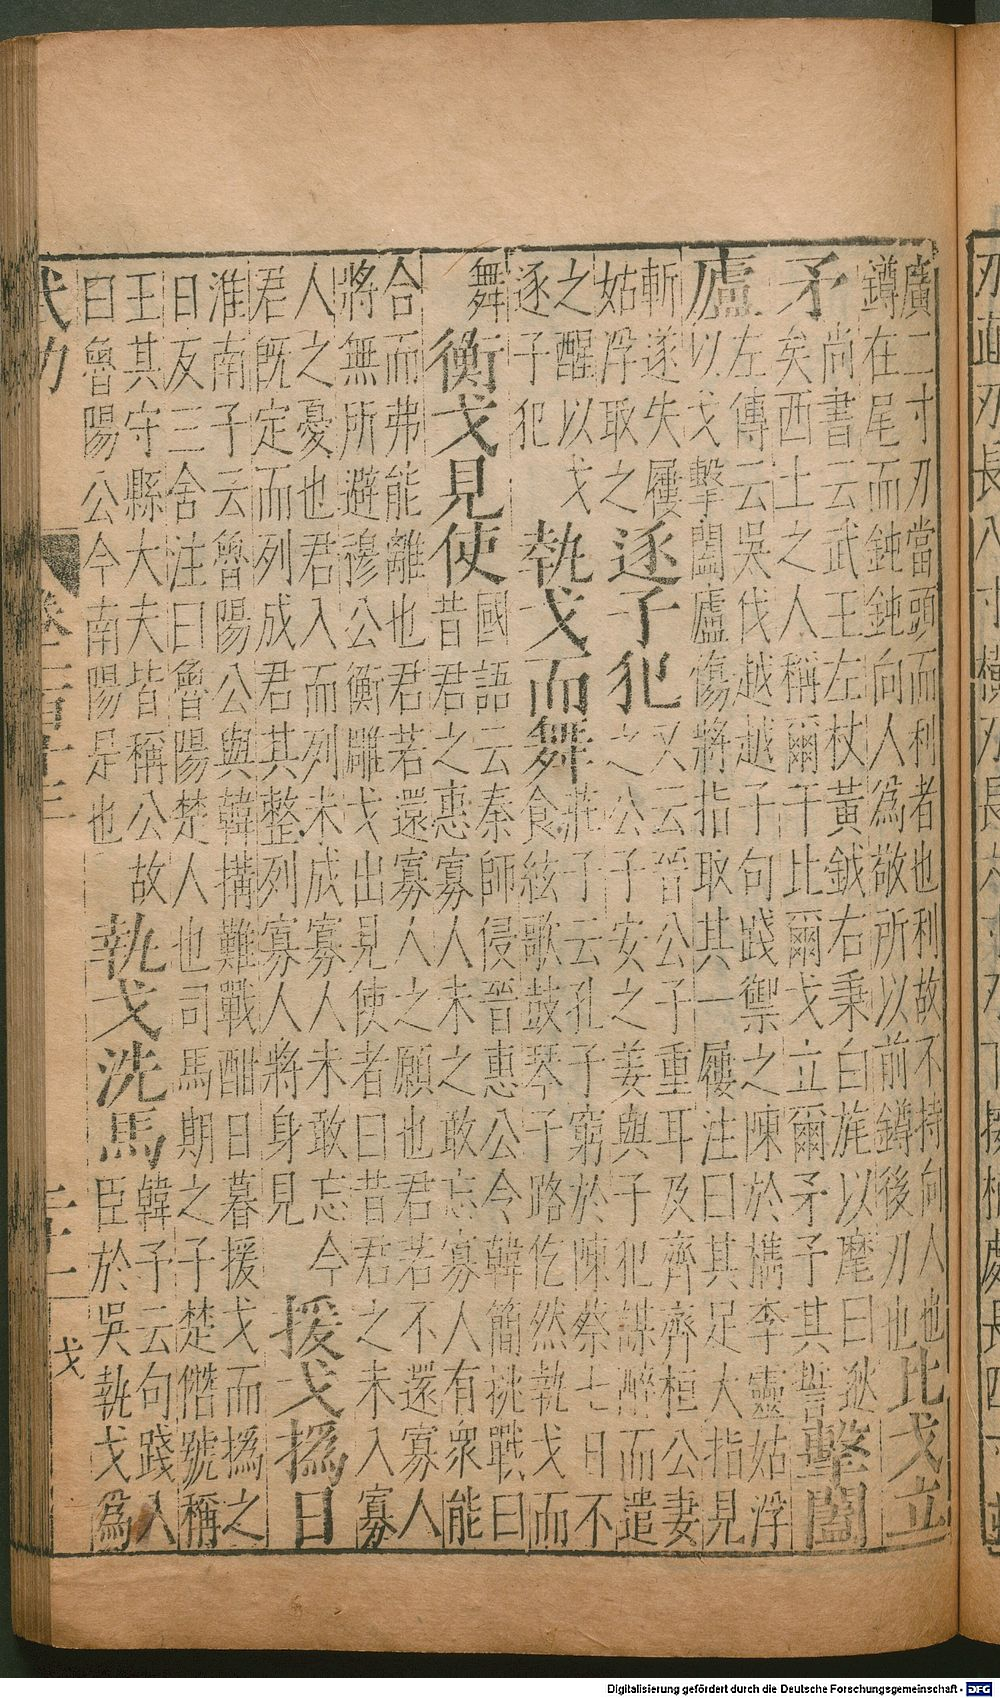 廣二寸刃當頭而利者也利故不持向人也
鐏在尾而鈍鈍向人為敬所以前鐏後刃也
比戈立
矛
尚書云武王左杖黃鉞右秉白旄以麾曰逖
矣西土之人稱爾干比爾戈立爾矛予其誓
擊闔
廬
左傳云吳伐越越子句踐禦之陳於檇李靈姑浮
以戈擊闔廬傷將指取其一屨注曰其足大指見
斬遂失屨
姑浮取之
逐子犯
又云晉公子重耳及齊齊桓公妻
之公子安之姜與子犯謀醉而遣
之醒以戈
逐子犯
執戈而舞
莊子云孔子窮於陳蔡七日不
食絃歌鼓琴子路仡然執戈而
舞
衡戈見使
國語云秦師侵晉惠公令韓簡挑戰曰
昔君之惠寡人未之敢忘寡人有衆能
合而弗能離也君若還寡人之願也君若不還寡人
將無所避穆公衡雕戈出見使者曰昔君之未入寡
人之憂也君入而列未成寡人未敢忘今
君既定而列成君其整列寡人將身見
援戈撝日
淮南子云魯陽公與韓搆難戰酣日暮援戈而撝之
日反三舍注曰魯陽楚人也司馬期之子楚僭號稱
王其守縣大夫皆稱公故
曰魯陽公今南陽是也
執戈洗馬
韓子云句踐入
臣於吳執戈為
武功
二十一
戈
Digitalisierung gefördert durch die Deutsche Forschungsgemeinschaft - DFG